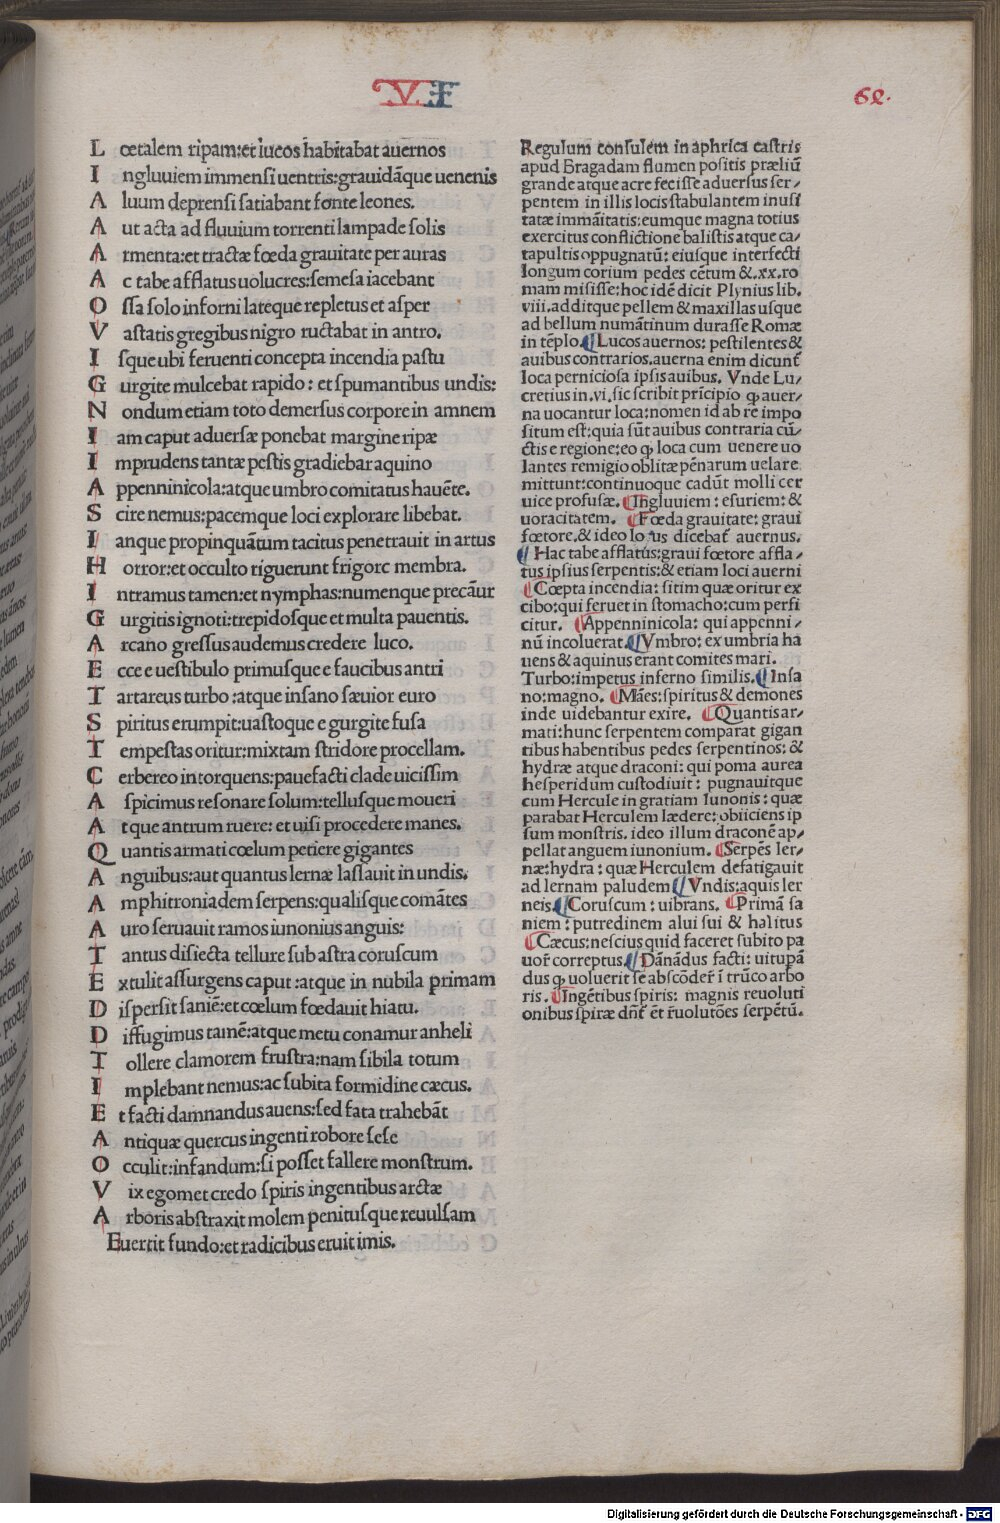 .V.F
62.
L œtalem ripam:et lucos habitabat auernos
I ngluuiem immensi uentris:grauidãque uenenis
A luum deprensi satiabant fonte leones.
A ut acta ad fluuium torrenti lampade solis
A rmenta:et tractæ fœda grauitate per auras
A c tabe afflatus uolucres:semesa iacebant
O ssa solo informi lateque repletus et asper
V astatis gregibus nigro ructabat in antro.
I sque ubi feruenti concepta incendia pastu
G urgite mulcebat rapido: et spumantibus undis:
N ondum etiam toto demersus corpore in amnem
I am caput aduersæ ponebat margine ripæ
I mprudens tantæ pestis gradiebar aquino
A ppenninicola:atque umbro comitatus hauẽte.
S cire nemus:pacemque loci explorare libebat.
I anque propinquãtum tacitus penetrauit in artus
H orror:et occulto riguerunt frigore membra.
I ntramus tamen:et nymphas:numenque precãur
G urgitis ignoti:trepidosque et multa pauentis.
A rcano gressus audemus credere luco.
E cce e uestibulo primusque e faucibus antri
T artareus turbo:atque insano sæuior euro
S piritus erumpit:uastoque e gurgite fusa
T empestas oritur:mixtam stridore procellam.
C erbereo intorquens:pauefacti clade uicissim
A spicimus resonare solum:tellusque moueri
A tque antrum ruere: et uisi procedere manes.
Q uantis armati cœlum petiere gigantes
A nguibus:aut quantus lernæ lassauit in undis.
A mphitroniadem serpens:qualisque comãtes
A uro seruauit ramos iunonius anguis:
T antus disiecta tellure sub astra coruscum
E xtulit assurgens caput:atque in nubila primam
D ispersit saniẽ:et cœlum fœdauit hiatu.
D iffugimus tamẽ:atque metu conamur anheli
T ollere clamorem frustra:nam sibila totum
I mplebant nemus:ac subita formidine cæcus.
E t facti damnandus auens:sed fata trahebãt
A ntiquæ quercus ingenti robore sese
O cculit:infandum:si posset fallere monstrum.
V ix egomet credo spiris ingentibus arctæ
A rboris abstraxit molem penitusque reuulsam
Euertit fundo:et radicibus eruit imis.
Regulum consulem in aphrica castris
apud Bragadam flumen positis præliũ
grande atque acre fecisse aduersus ser/
pentem in illis locis stabulantem inusi
tatæ immãitatis:eumque magna totius
exercitus conflictione balistis atque ca/
tapultis oppugnatũ: eiusque interfecti
longum corium pedes cẽtum &.xx.ro
mam misisse:hoc idẽ dicit Plynius lib.
viii.additque pellem & maxillas usque
ad bellum numãtinum durasse Romæ
in tẽplo.¶Lucos auernos: pestilentes &
auibus contrarios.auerna enim dicunt̃
loca perniciosa ipsis auibus. Vnde Lu/
cretius in.vi.sic scribit prĩcipio ꝙ auer/
na uocantur loca:nomen id ab re impo
situm est:quia sũt auibus contraria cũ/
ctis e regione:eo ꝙ loca cum uenere uo
lantes remigio oblitæ pẽnarum uelare
mittunt:continuoque cadũt molli cer
uice profusæ. ¶Ingluuiem: esuriem: &
uoracitatem. ¶Fœda grauitate: graui
fœtore.& ideo locus dicebat̃ auernus.
¶Hac tabe afflatus:graui fœtore affla/
tus ipsius serpentis:& etiam loci auerni
¶Cõepta incendia: sitim quæ oritur ex
cibo:qui feruet in stomacho:cum perfi
citur. ¶Appenninicola: qui appenni/
nũ incoluerat.¶Vmbro: ex umbria ha
uens & aquinus erant comites mari.
Turbo:impetus inferno similis.¶Insa
no:magno. ¶Mães:spiritus & demones
inde uidebantur exire. ¶Quantis ar/
mati:hunc serpentem comparat gigan
tibus habentibus pedes serpentinos: &
hydræ atque draconi: qui poma aurea
hesperidum custodiuit: pugnauitque
cum Hercule in gratiam Iunonis: quæ
parabat Herculem lædere: obiiciens ip
sum monstris. ideo illum draconẽ ap/
pellat anguem iunonium. ¶Serpẽs ler/
næ:hydra: quæ Herculem defatigauit
ad lernam paludem ¶Vndis:aquis ler
neis.¶Coruscum: uibrans. ¶Primã sa
niem: putredinem alui sui & halitus
¶Cæcus:nescius quid faceret subito pa
uore correptus.¶Dãnãdus facti: uitupã
dus ꝙ uoluerit se abscõdere ĩ trũco arbo
ris. ¶Ingẽtibus spiris: magnis reuoluti
onibus spiræ dñt̃ ẽt r̃uolutões serpẽtũ.
Digitalisierung gefördert durch die Deutsche Forschungsgemeinschaft - DFG